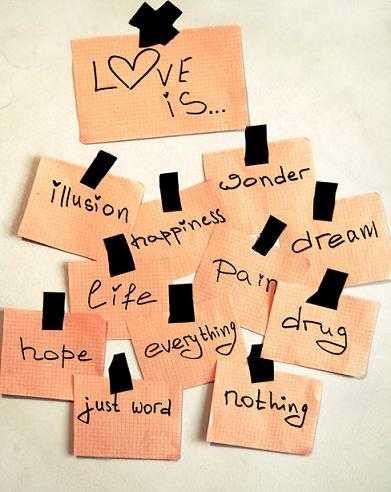 L♡VE
is...
wonder
illusion
happiness
dream
life
Pain
drug
hope
everything
just word
nothing